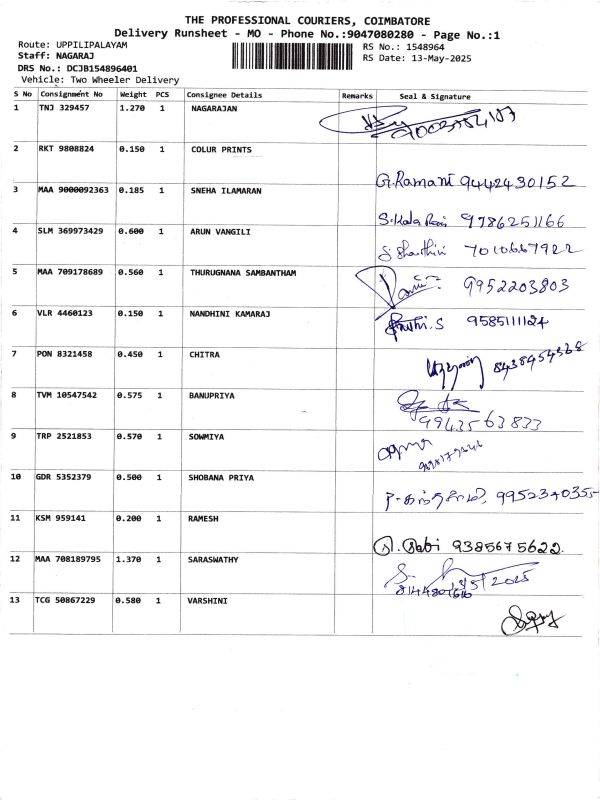 THE PROFESSIONAL COURIERS, COIMBATORE
Delivery Runsheet - MO - Phone No.:9047080280 - Page No.:1
Route: UPPILIPALAYAM
RS No.: 1548964
Staff: NAGARAJ
RS Date: 13-May-2025
DRS No.: DCJB154896401
Vehicle: Two Wheeler Delivery
S No Consignment No Weight PCS Consignee Details Remarks Seal & Signature
1 TNJ 329457 1.270 1 NAGARAJAN
2 RKT 9808824 0.150 1 COLUR PRINTS
G.Ramani 9442430152
3 MAA 9000092363 0.185 1 SNEHA ILAMARAN
S.Kala 9786251166
4 SLM 369973429 0.600 1 ARUN VANGILI
7010667922
5 MAA 709178689 0.560 1 THURUGNANA SAMBANTHAM
9952203803
6 VLR 4460123 0.150 1 NANDHINI KAMARAJ
9585111124
7 PON 8321458 0.450 1 CHITRA
8438454368
8 TVM 10547542 0.575 1 BANUPRIYA
9943563833
9 TRP 2521853 0.570 1 SOWMIYA
10 GDR 5352379 0.500 1 SHOBANA PRIYA
9952340355
11 KSM 959141 0.200 1 RAMESH
9385675622.
12 MAA 708189795 1.370 1 SARASWATHY
13/5/2025
13 TCG 50867229 0.580 1 VARSHINI